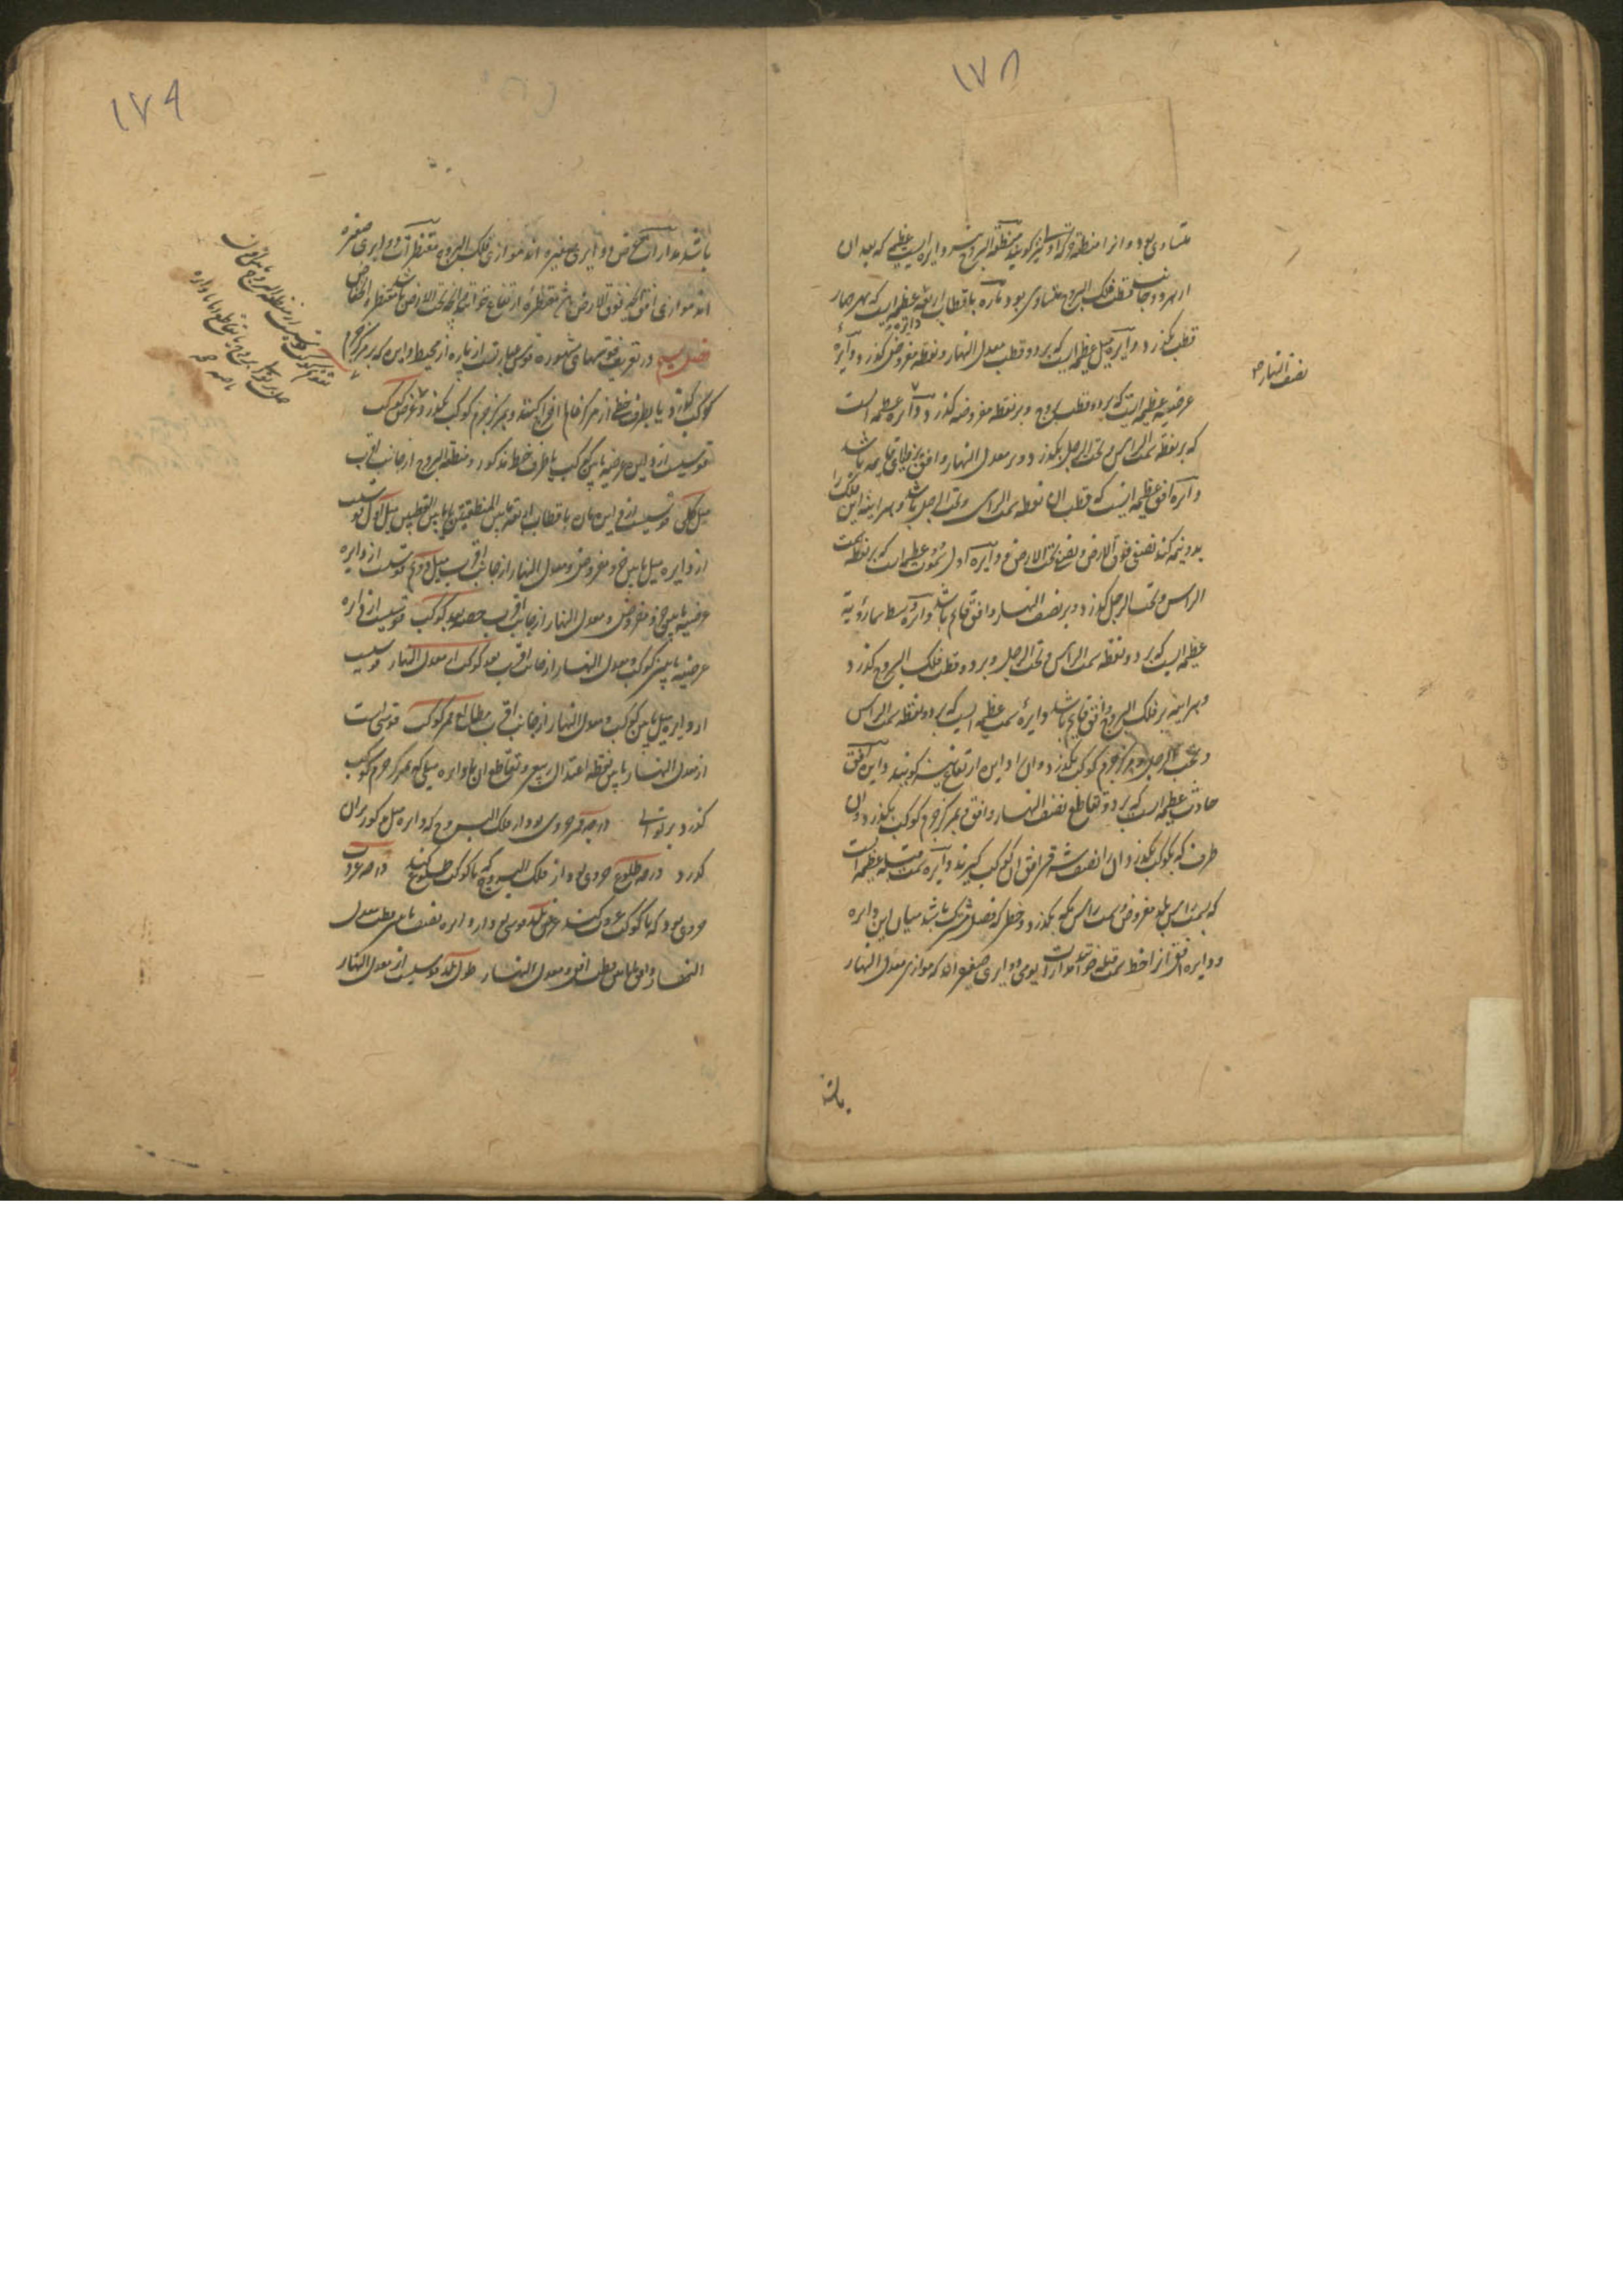 ١٧٨
متساوی بود و آنرا منطقه حرکة نیز گویند منطقة البروج دایره ایست عظیمه که بعد آن
از هر دو جانب قطب فلک البروج متساوی بود دایره ماره باقطاب اربعه عظیمه ایست که بهر چهار
قطب گذرد دایره میل عظیمه ایست که بر دو قطب معدل النهار و نقطه مفروض گذرد و دایره
عرضیه عظیمه ایست که بر دو قطب بروج و بر نقطه مفروضه گذرد و دایره عظیمه است
نصف النهار صح
که بر نقطه سمت الراس و تحت الرجل بگذرد و بر معدل النهار و افق بزوایای قایمه باشد
دایره افق عظیمه ایست که قطب آن نقطه سمت الراس و تحت الرجل باشد و هر آینه این فلک را
بدو نیمه کند نصفی فوق الارض و نصفی تحت الارض و دایره اول سموت عظیمه ایست که بر نقطه سمت
الراس و تحت الرجل گذرد و بر نصف النهار و افق قایم باشد دایره وسط سماء رؤیة
عظیمه ایست که بر دو نقطه سمت الراس و تحت الرجل و بر دو قطب فلک البروج گذرد
و هر آینه بر فلک البروج و افق قایم باشد دایرهٔ سمت عظیمه ایست که بر دو نقطه سمت الراس
و تحت الرجل و بمرکز جرم کوکب بگذرد و آن را دایره ارتفاع نیز گویند دایره افق
حادث عظیمه ایست که بر دو تقاطع نصف النهار و افق و بمرکز جرم کوکب بگذرد و آن
طرف که بکوکب بگذرد آن را نصف شرقی افق آن کوکب گیرند دایره سمت قبله عظیمه است
که بسمت راس بلد مفروض و سمت راس مکه بگذرد و خطی که فصل مشترک باشد میان این دایره
و دایره افق آنرا خط سمت قبله خوانند مدارات یومی دوایری صغیره اند که موازی معدل النهار
باشند
١٧٩
باشند مدارات عرض دوایری صغیره اند موازی فلک البروج مقنطرات دوایری صغیره
اند موازی افق آنچه فوق الارض باشد مقنطره ارتفاع خوانند و آنچه تحت الارض باشد مقنطره انخفاض
فصل سیم در تعریف قوسهای مشهوره قوس عبارتست از پاره از محیط دایره که بر مرکز جرم
کوکب گذرد یا بطرف خطی از مرکز عالم اخراج کنند و بمرکز جرم کوکب بگذرد عرض کوکب
قوسیست از دایره عرضیه مابین کوکب یا طرف خط مذکور و منطقة البروج از جانب اقرب
میل کلی قوسیست از دایره ماره باقطاب اربعه مابین المنطقتین یا مابین القطبین میل اول قوسیست
از دایره میل مابین جزو مفروض و معدل النهار از جانب اقرب میل دوم قوسیست از دایره
عرضیه مابین جزو مفروض و معدل النهار از جانب اقرب حصه بعد کوکب قوسیست از دایره
عرضیه مابین کوکب و معدل النهار از جانب اقرب بعد کوکب از معدل النهار قوسیست
از دایره میل مابین کوکب و معدل النهار از جانب اقرب مطالع ممر کوکب قوسی است
از معدل النهار مابین نقطه اعتدال ربیعی و تقاطع آن با دایره میلی که بمرکز جرم کوکب
گذرد بر توالی درجه ممر جزوی بود از فلک البروج که دایره میل مذکور بران
گذرد درجه طلوع جزوی بود از فلک البروج که با کوکب طلوع کند درجه غروب
جزوی بود که با کوکب غروب کند عرض بلد قوسی بود از دایره نصف النهار مابین قطب معدل
النهار و افق یا مابین قطب افق و معدل النهار طول بلد قوسیست از معدل النهار
تقویم کوکب قوسیست از منطقة البروج مابین